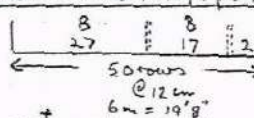 8 8
27 17 2
50 rows
@ 12 cm
6m = 19'8"